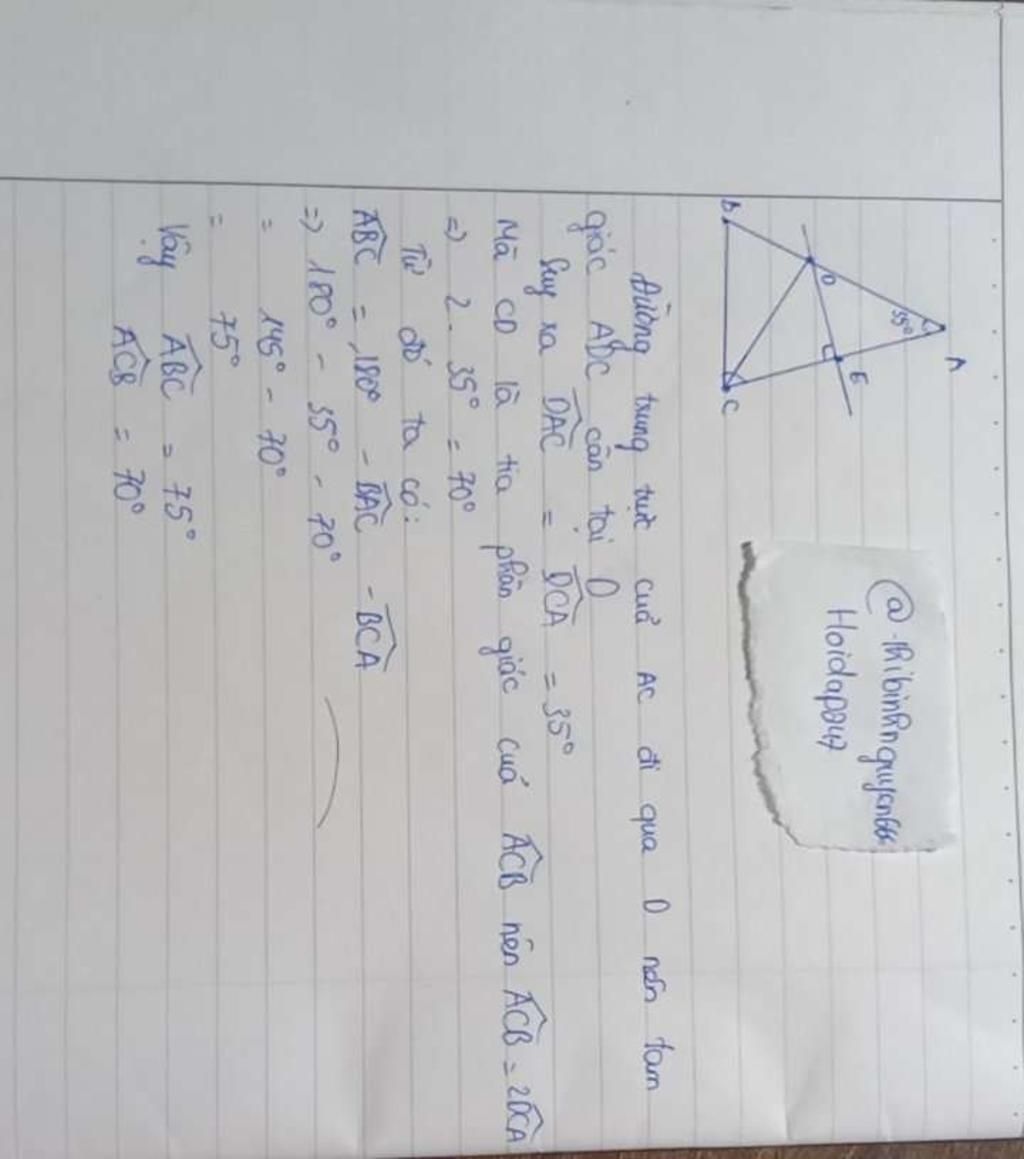 A
35°
D
E
B
C
Hoidap247
Đường trung trực cuả AC đi qua D nên tam
giác ADC cân tại D
Suy ra DAC = DCA = 35°
Mà CD là tia phân giác cuả ACB nên ACB = 2DCA
=> 2. 35° = 70°
Từ đó ta có:
ABC = 180° - BAC - BCA
=> 180° - 35° - 70°
= 145° - 70°
= 75°
Vậy ABC = 75°
ACB = 70°